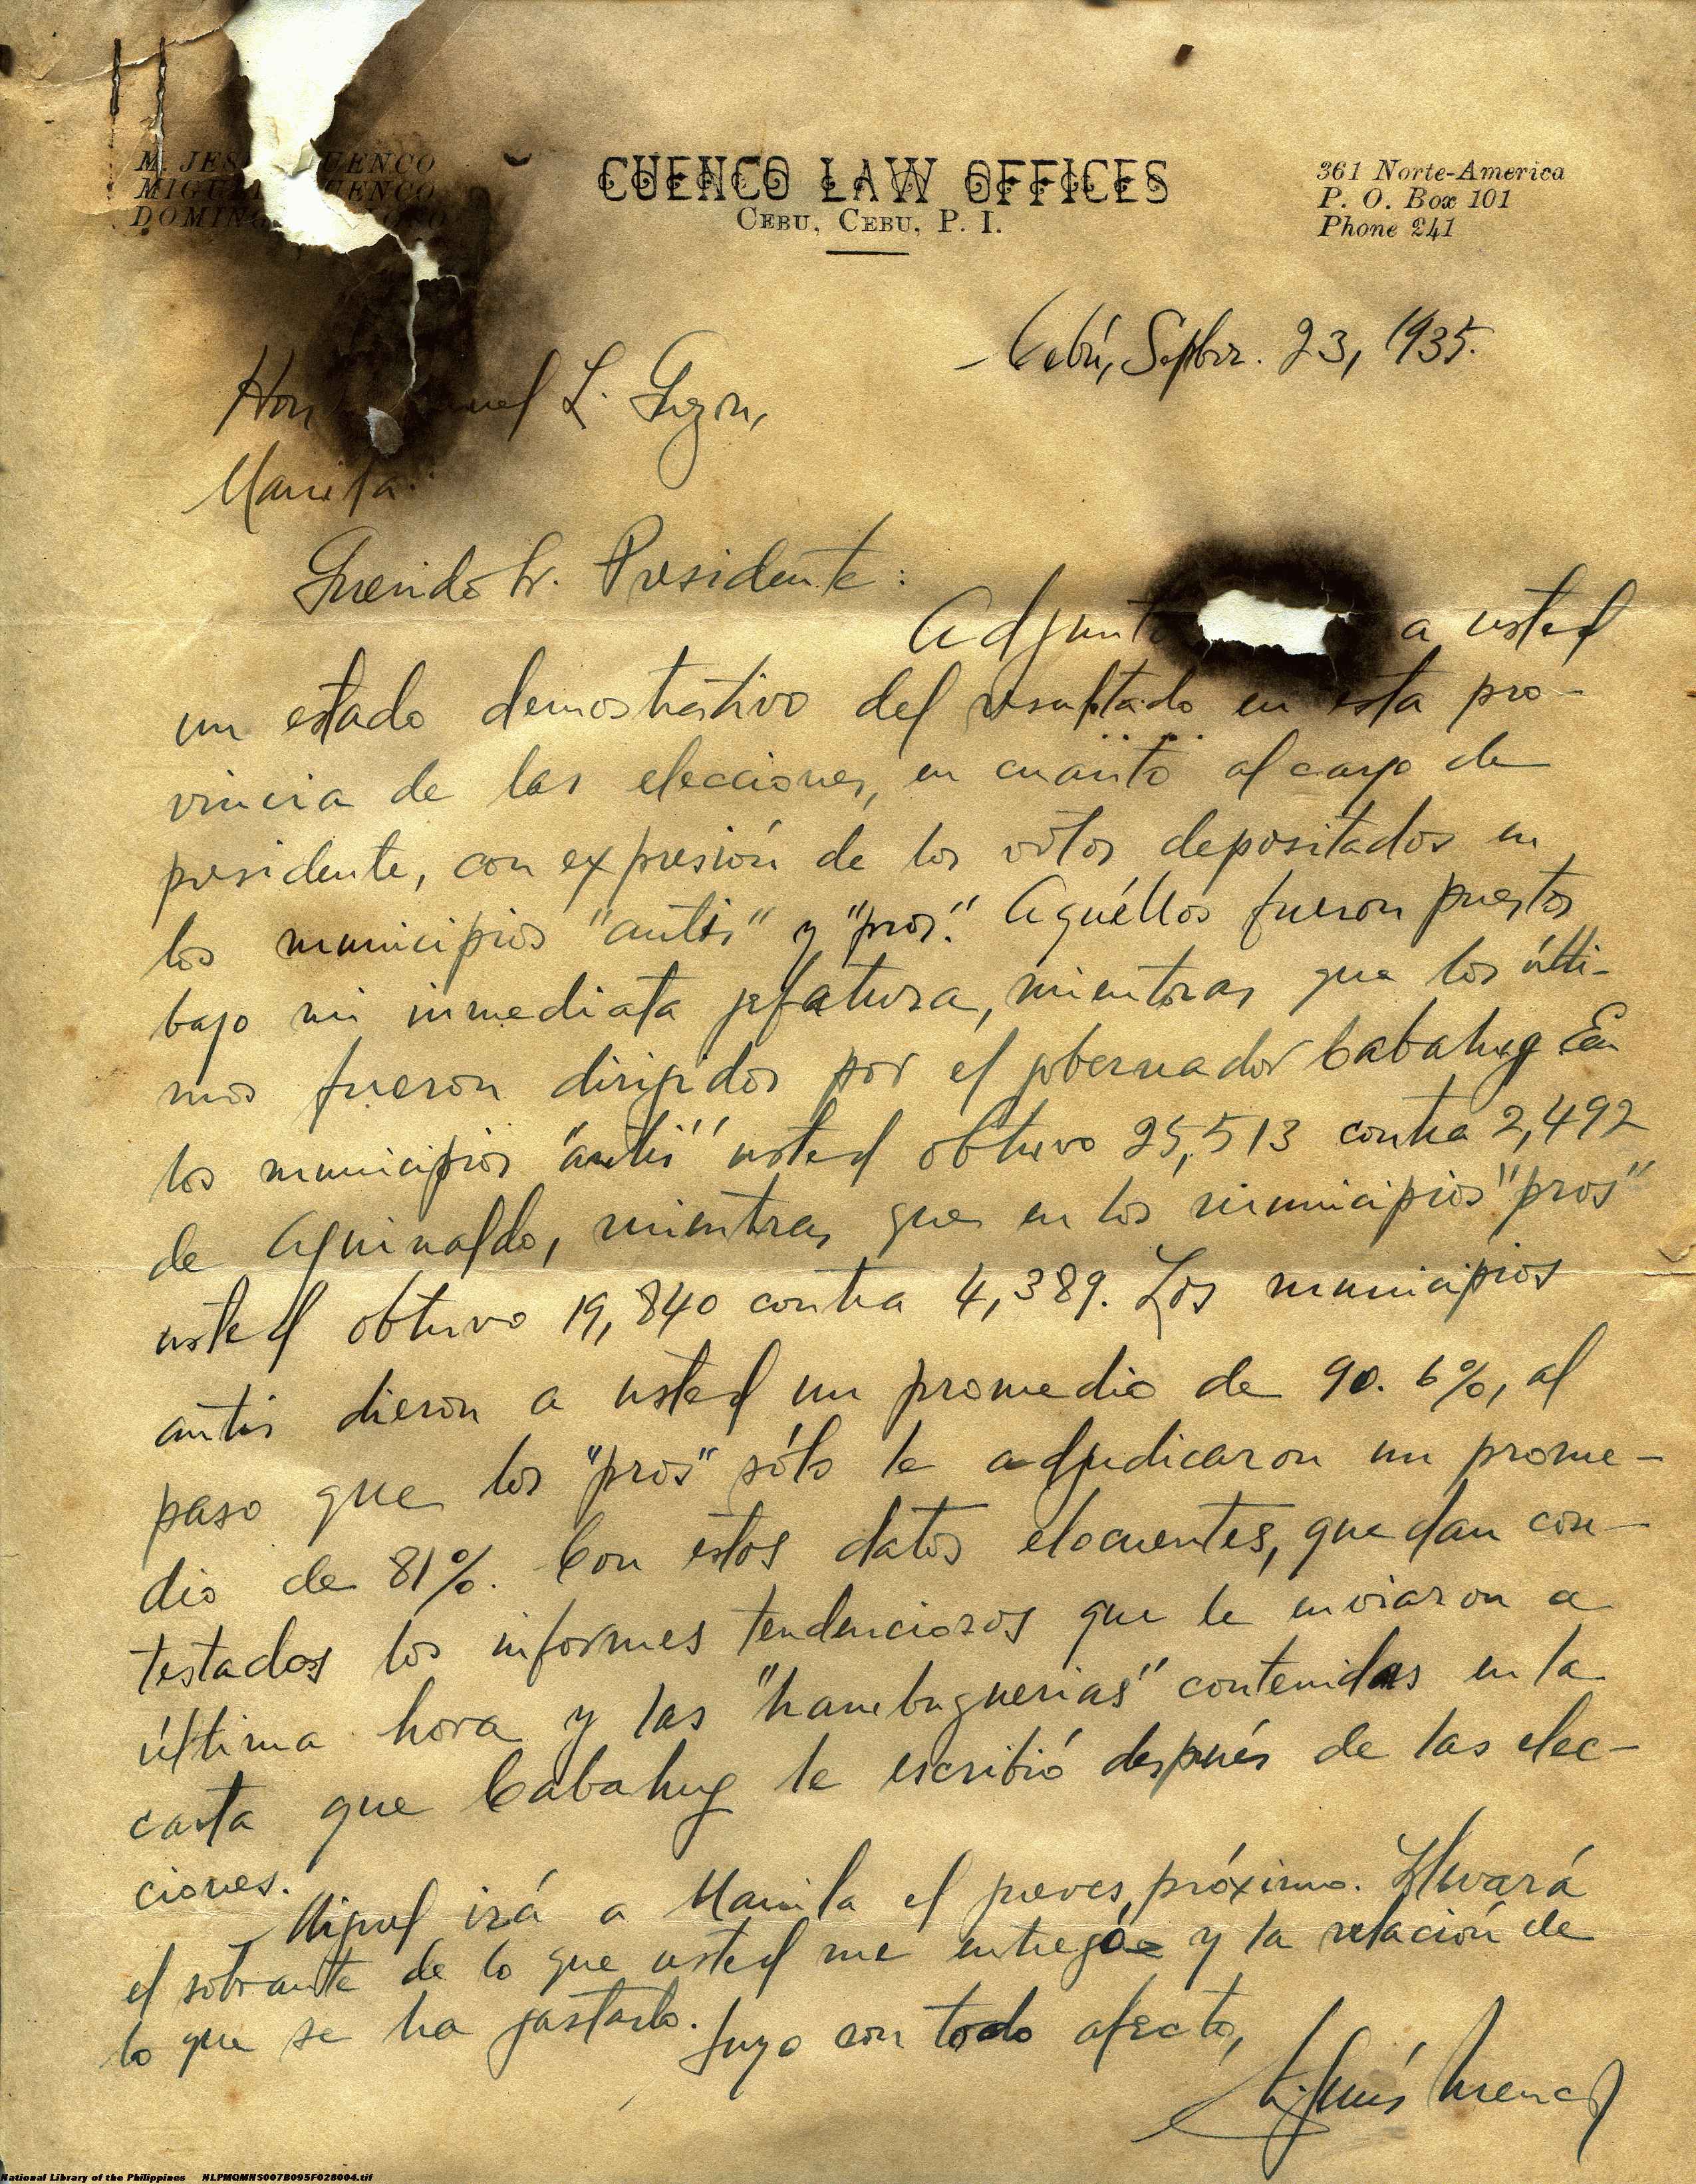 M. JES UENCO
MIGUEL CUENCO
DOMINGO
CUENCO LAW OFFICES
CEBU, CEBU, P. I.
361 Norte-America
P. O. Box 101
Phone 241
Cebú, Sepbre. 23, 1935.
Hon. Manuel L. Quezon,
Manila.
Querido Sr. Presidente:
Adjunto a usted
un estado demostrativo del resultado en esta pro-
vincia de las elecciones, en cuanto al cargo de
presidente, con expresión de los votos depositados en
los municipios "antis" y "pros". Aquéllos fueron puestos
bajo mi inmediata jefatura, mientras que los últi-
mos fueron dirigidos por el gobernador Cabahug. En
los municipios "antis" usted obtuvo 25,513 contra 2,492
de Aguinaldo, mientras que en los municipios "pros"
usted obtuvo 19,840 contra 4,389. Los municipios
antis dieron a usted un promedio de 90.6%, al
paso que los "pros" sólo le adjudicaron un prome-
dio de 81%. Con estos datos elocuentes, quedan con-
testados los informes tendenciosos que le enviaron a
última hora y las "hambuguerias" contenidas en la
carta que Cabahug le escribió después de las elec-
ciones.
Miguel irá a Manila el jueves próximo. Llevará
el sobrante de lo que usted me entregó y la relación de
lo que se ha gastado.
Suyo con todo afecto,
M. Jesús Cuenco
National Library of the Philippines NLPMQMNS007B095F028004.tif